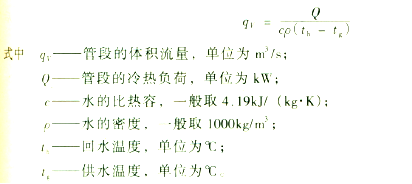 qᵥ = Q / cρ(tₕ − t_g)
式中 qᵥ——管段的体积流量，单位为 m³/s；
Q——管段的冷热负荷，单位为 kW；
c——水的比热容，一般取 4.19kJ/（kg·K）；
ρ——水的密度，一般取 1000kg/m³；
tₕ——回水温度，单位为℃；
t_g——供水温度，单位为℃。